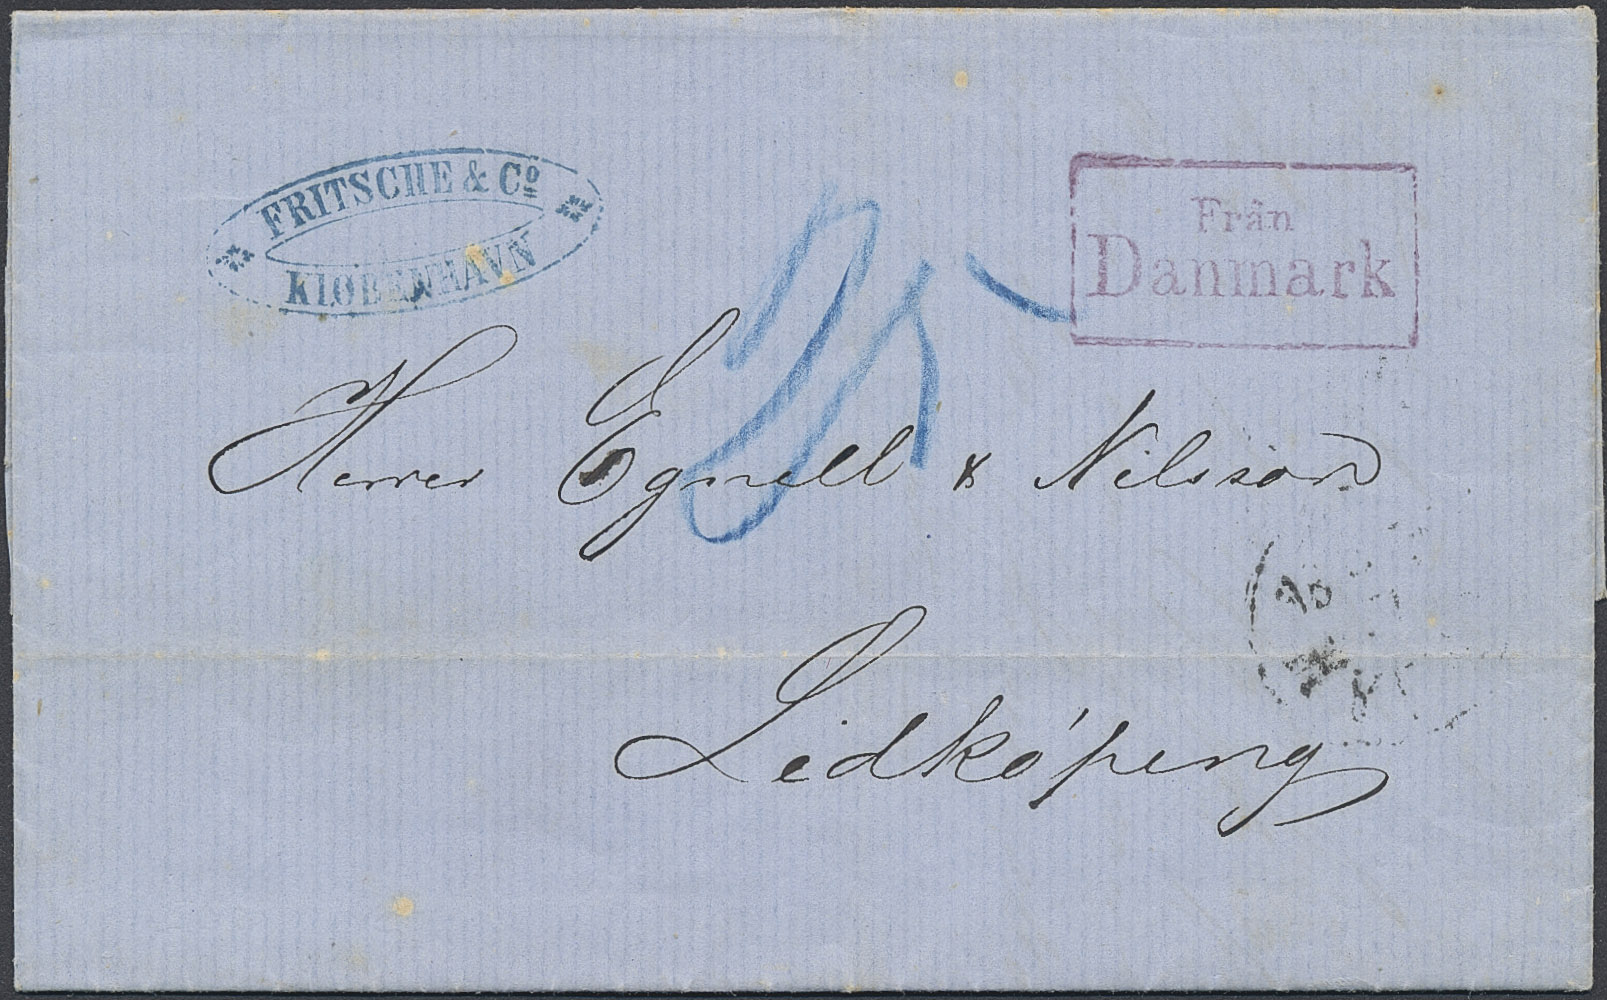 FRITSCHE & Co
KIØBENHAVN
Från
Danmark
25
Herrer Egnell & Nilsson
Lidköping